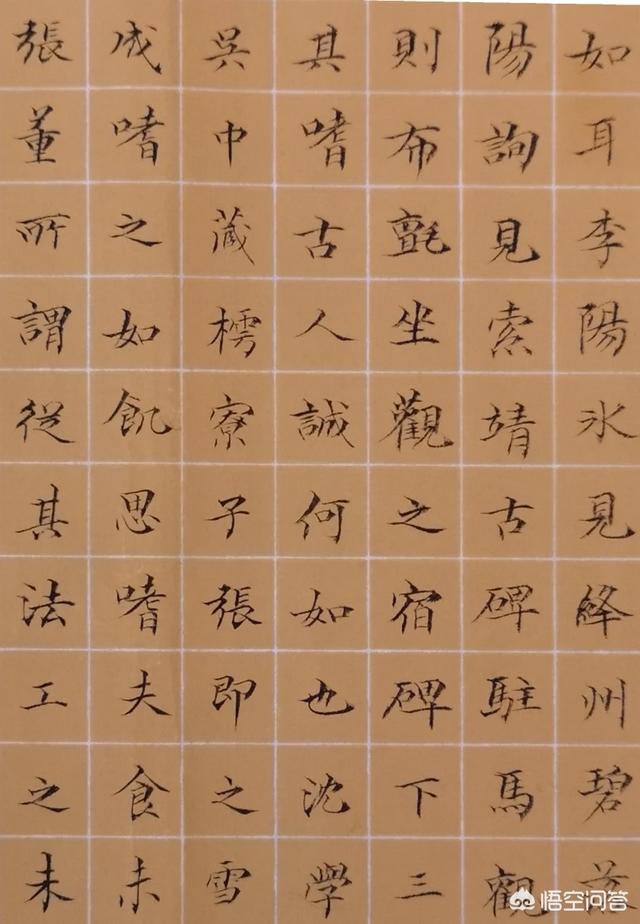 如耳李陽冰見絳州碧落
陽詢見索靖古碑駐馬觀
則布氈坐觀之宿碑下三
其嗜古人誠何如也沈學
吳中藏樗寮子張即之雪
成嗜之如飢思嗜夫食未
張董所謂從其法工之未
悟空问答